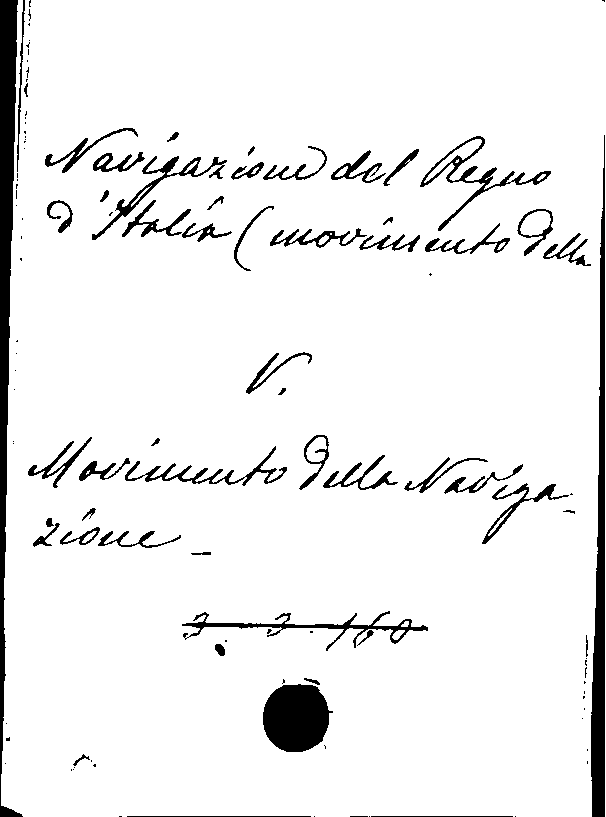 Navigazione del Regno
d'Italia (movimento della
V.
Movimento della Naviga-
zione -
3. 3. 160